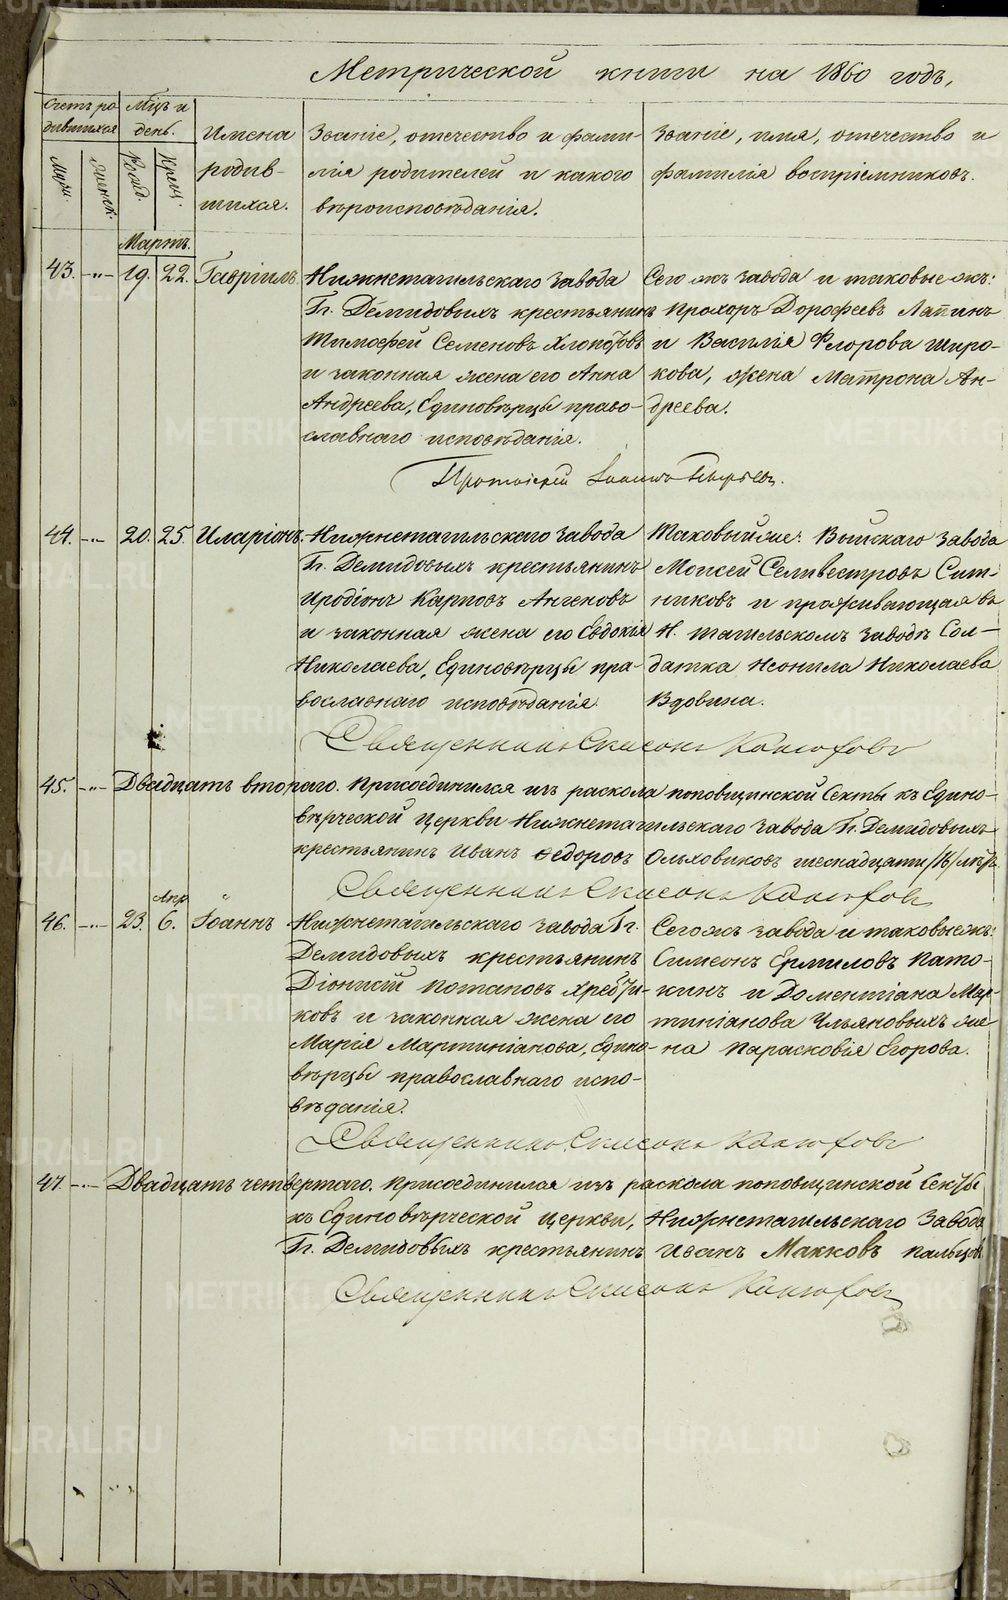 Метрической книги на 1860 годъ,
Счетъ ро-
дившихся
Мѣцъ и
день.
Имена
родив-
шихся.
Званіе, отечество и фами-
лія родителей и какого
вѣроисповѣданія.
Званіе, имя, отечество и
фамилія воспріемниковъ.
Муж.
Женск.
Рожд.
Крещ.
Мартъ.
43. -"- 19. 22. Гавріилъ.
Нижнетагильскаго завода
Гг. Демидовыхъ крестьянинъ
Тимофей Семеновъ
и законная жена его Анна
Андреева, Единовѣрцы право-
славнаго исповѣданія.
Сего жъ завода и таковые жъ:
Прохоръ Дорофеевъ Лапинъ
и Василія Флорова Широ-
кова, жена Матрона Ан-
дреева.
Протоіерей Іоаннъ
44. -"- 20. 25. Иларіонъ.
Нижнетагильскаго завода
Гг. Демидовыхъ крестьянинъ
Иродіонъ Карповъ
и законная жена его Евдокія
Николаева, Единовѣрцы пра-
вославнаго исповѣданія.
Таковый же: Выйскаго завода
Моисей Селивестровъ Сит-
никовъ и проживающая въ
Н. тагильскомъ заводѣ Сол-
датка Неонила Николаева
Вдовина.
Священникъ Симеонъ
45. -"- Двадцать втораго. Присоединился изъ раскола поповщинской секты къ Едино-
вѣрческой церкви Нижнетагильскаго завода Гг. Демидовыхъ
крестьянинъ Иванъ Федоровъ Ольховиковъ шеснадцати /16/ лѣтъ.
Священникъ Симеонъ
Апр.
46. -"- 23. 6. Іоаннъ
Нижнетагильскаго завода Гг.
Демидовыхъ крестьянинъ
Діонисій Потаповъ Хребти-
ковъ и законная жена его
Марія Мартиніанова, Едино-
вѣрцы православнаго испо-
вѣданія.
Сего жъ завода и таковые жъ:
Симеонъ Ермиловъ Пато-
кинъ и Доментіана Мар-
тиніанова Ульяновыхъ же-
на Парасковія Егорова.
Священникъ Симеонъ
47. -"- Двадцать четвертаго. Присоединился изъ раскола поповщинской секты
къ Единовѣрческой церкви, Нижнетагильскаго завода
Гг. Демидовыхъ крестьянинъ Иванъ
Священникъ Симеонъ
METRIKI.GASO-URAL.RU